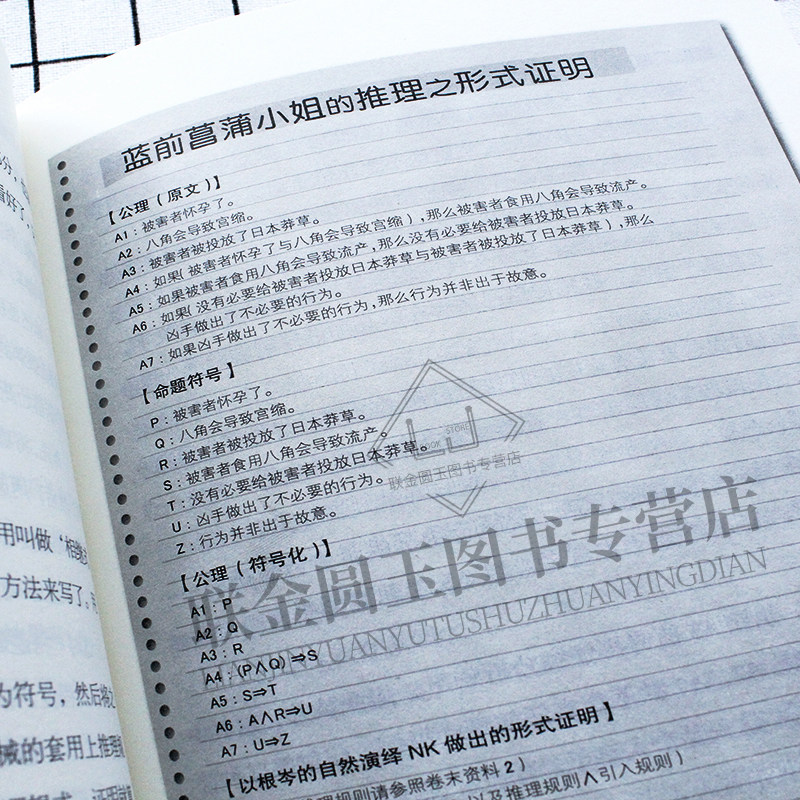 蓝前菖蒲小姐的推理之形式证明
【公理（原文）】
A1：被害者怀孕了。
A2：八角会导致宫缩。
A3：被害者被投放了日本莽草。
A4：如果（被害者怀孕了与八角会导致宫缩），那么被害者食用八角会导致流产。
A5：如果被害者食用八角会导致流产，那么没有必要给被害者投放日本莽草。
A6：如果（没有必要给被害者投放日本莽草与被害者被投放了日本莽草），那么
凶手做出了不必要的行为。
A7：如果凶手做出了不必要的行为，那么行为并非出于故意。
【命题符号】
P：被害者怀孕了。
Q：八角会导致宫缩。
R：被害者被投放了日本莽草。
S：被害者食用八角会导致流产。
T：没有必要给被害者投放日本莽草。
U：凶手做出了不必要的行为。
Z：行为并非出于故意。
【公理（符号化）】
A1：P
A2：Q
A3：R
A4：(P∧Q)⇒S
A5：S⇒T
A6：A∧R⇒U
A7：U⇒Z
【以根岑的自然演绎 NK 做出的形式证明】
理规则请参照卷末资料 2）
以及推理规则∧引入规则）
看好了
用叫做“相继
方法来写了。
为符号，然后将之
械的套用上推理
LJ
BOOK STORE
联金圆玉图书专营店
联金圆玉图书专营店
LIANJINYUANYUTUSHUZHUANYINGDIAN